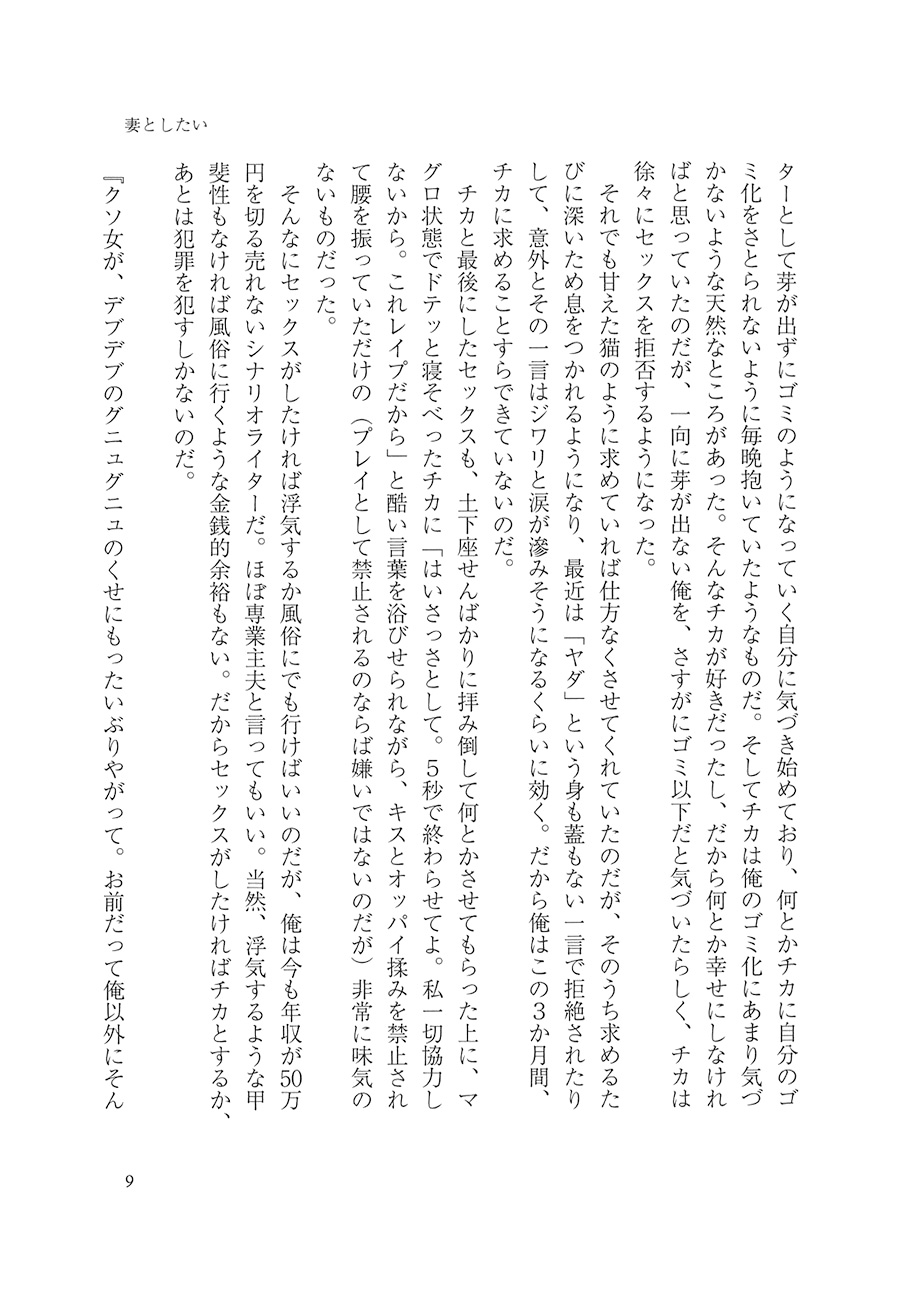 妻としたい
ターとして芽が出ずにゴミのようになっていく自分に気づき始めており、何とかチカに自分のゴ
ミ化をさとられないように毎晩抱いていたようなものだ。そしてチカは俺のゴミ化にあまり気づ
かないような天然なところがあった。そんなチカが好きだったし、だから何とか幸せにしなけれ
ばと思っていたのだが、一向に芽が出ない俺を、さすがにゴミ以下だと気づいたらしく、チカは
徐々にセックスを拒否するようになった。
それでも甘えた猫のように求めていれば仕方なくさせてくれていたのだが、そのうち求めるた
びに深いため息をつかれるようになり、最近は「ヤダ」という身も蓋もない一言で拒絶されたり
して、意外とその一言はジワリと涙が滲みそうになるくらいに効く。だから俺はこの3か月間、
チカに求めることすらできていないのだ。
チカと最後にしたセックスも、土下座せんばかりに拝み倒して何とかさせてもらった上に、マ
グロ状態でドテッと寝そべったチカに「はいさっさとして。5秒で終わらせてよ。私一切協力し
ないから。これレイプだから」と酷い言葉を浴びせられながら、キスとオッパイ揉みを禁止され
て腰を振っていただけの（プレイとして禁止されるのならば嫌いではないのだが）非常に味気の
ないものだった。
そんなにセックスがしたければ浮気するか風俗にでも行けばいいのだが、俺は今も年収が50万
円を切る売れないシナリオライターだ。ほぼ専業主夫と言ってもいい。当然、浮気するような甲
斐性もなければ風俗に行くような金銭的余裕もない。だからセックスがしたければチカとするか、
あとは犯罪を犯すしかないのだ。
『クソ女が、デブデブのグニュグニュのくせにもったいぶりやがって。お前だって俺以外にそん
9